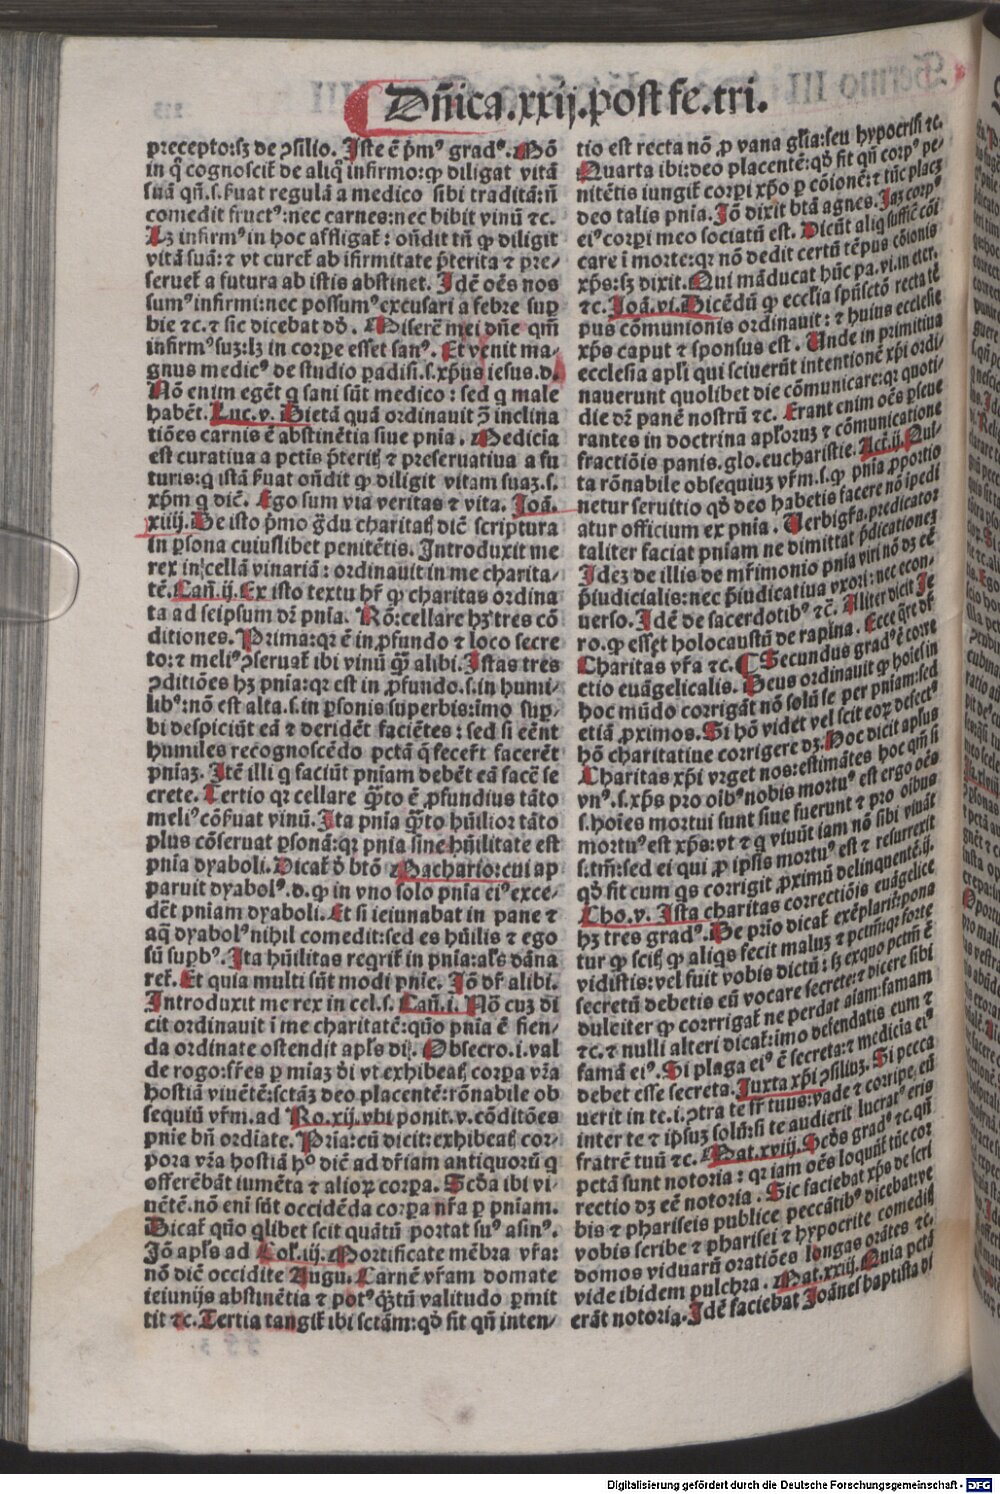 Dñica.xxij.post fe.tri.
precepto:sꝫ de ↄsilio. Iste ē p̄mꝰ gradꝰ. Nō
in qͦ cognoscit̄ de aliqͦ infirmo:ꝙ diligat vitā
suā qñ.s.ẜuat regulā a medico sibi traditā:ñ
comedit fructꝰ:nec carnes:nec bibit vinū ⁊c.
Lꝫ infirmꝰ in hoc affligat̄: oñdit tñ ꝙ diligit
vitā suā: ⁊ vt curet̄ ab ĩfirmitate p̄terita ⁊ pre-
seruet̄ a futura ab istis abstinet. Idē oēs nos
sumꝰ infirmi:nec possumꝰ excusari a febre suꝑ
bie ⁊c. ⁊ sic dicebat dd̄. Miserē mei dñe qm̄
infirmꝰ suꝫ:lꝫ in corꝑe esset sanꝰ. Et venit ma-
gnus medicꝰ de studio paradisi.s.xp̄us iesus.d.
Nō enim egēt q̇ sani sūt medico: sed q̇ male
habēt. Luc.v. Dietā quā ordinauit ↄ̄ inclina
tiōes carnis ē abstinētia siue pnīa. Medicīa
est curatiua a pctīs p̄teritꝭ ⁊ preseruatiua a fu
turis:q̇ istā ẜuat oñdit ꝙ diligit vitam suaꝫ.s.
xp̄m q̇ dic̄. Ego sum via veritas ⁊ vita. Joā.
xiiij. De isto p̄mo gͣdu charitatꝭ dic̄ scriptura
in ꝑsona cuiuslibet penitētis. Introduxit me
rex in cellā vinariā: ordinauit in me charita-
tē. Cañ.ij. Ex isto textu hr̄ ꝙ charitas ordina
ta ad seipsum dr̄ pnīa. Rō:cellare hꝫ tres cō
ditiones. Prima:qꝛ ē in ꝓfundo ⁊ loco secre
to:⁊ meliꝰ ↄseruat̄ ibi vinū qͣꝫ alibi. Istas tres
ↄditiōes hꝫ pnīa:qꝛ est in ꝓfundo.s.in humi-
libꝰ:nō est alta.s.in ꝑsonis superbis:īmo suꝑ-
bi despiciūt eā ⁊ deridēt faciētes: sed si eēnt
humiles recognoscēdo pctā q̄ fecer̄t facerēt
pnīaꝫ. Itē illi q̇ faciūt pnīam debēt eā facē se
crete. Tertio qꝛ cellare qͣꝫto ē ꝓfundius tāto
meliꝰ cōẜuat vinū. Ita pnīa qͣꝫto hūilior tāto
plus cōseruat ꝑsonā:qꝛ pnīa sine hūilitate est
pnīa dyaboli. Dicat̄ d̄ btō Machario:cui ap
paruit dyabolꝰ.d.ꝙ in vno solo pnīa eiꝰ exce-
dēt pnīam dyaboli. Et si ieiunabat in pane ⁊
aq̄ dyabolꝰ nihil comedit:sed es hūilis ⁊ ego
sū suꝑbꝰ. Ita hūilitas reqrit̄ in pnīa:alr̄s dāna
ret̄. Et quia multi sūt modi pnīe. Iō dr̄ alibi.
Introduxit me rex in cel.s. Cañ.i. Nō cuꝫ di
cit ordinauit ī me charitatē:qūo pnīa ē fien-
da ordinate ostendit apl̄s di. Obsecro.i.val
de rogo:fr̄es ꝑ mīaꝫ dī vt exhibeatꝭ corpa vr̄a
hostiā viuētē:sctāꝫ deo placentē:rōnabile ob
sequiū vr̄m.ad Ro.xij.vbi ponit.v.cōditōes
pnīe bñ ordīate. Prīa:cū dicit:exhibeatꝭ cor-
pora vr̄a hostiā hͦ dic̄ ad dr̄iam antiquorū q̇
offerēbāt iumēta ⁊ alioꝝ corpa. Scd̄a ibi vi-
uētē.nō eni sūt occidēda corpa nr̄a ꝑ pnīam.
Dicat̄ qūo qlibet scit quātū portat suꝰ asinꝰ.
Iō apl̄s ad Col̄.iij. Mortificate mēbra vr̄a:
nō dic̄ occidite Augu. Carnē vr̄am domate
ieiunijs abstinētia ⁊ potꝰ qͣꝫtū valitudo ꝑmit
tit ⁊c. Tertia tangit̄ ibi sctām:qd̄ fit qñ inten-
tio est recta nō ꝓ vana gl̄ia:seu hypocrisi ⁊c.
Quarta ibi:deo placentē:qd̄ fit qñ corpꝰ pe-
nitētis iungit̄ corpi xp̄o ꝑ cōionē:⁊ tūc placꝫ
deo talis pnīa. Iō dixit btā agnes. Jaꝫ corpꝰ
eiꝰ corpi meo sociatū est. Dicūt aliq̇ sufficē cōi
care ī morte:qꝛ nō dedit certū tēpus cōionis
xp̄s:sꝫ dixit. Qui māducat hūc pa.vi.in eter.
⁊c. Joā.vi. Dicēdū ꝙ eccl̄ia spūsctō recta tē
pus cōmunionis ordinauit: ⁊ huius ecclesie
xp̄s caput ⁊ sponsus est. Unde in primitiua
ecclesia apl̄i qui sciuerūt intentionē xp̄i ordi
nauerunt quolibet die cōmunicare:qꝛ quoti-
die dr̄ panē nostrū ⁊c. Erant enim oēs ꝑseue
rantes in doctrina apl̄oruꝫ ⁊ cōmunicatione
fractiōis panis.glo.eucharistie. Act̄.ij. Quī-
ta rōnabile obsequiuꝫ vr̄m.s.ꝙ pnīa ꝓportio
netur seruitio qd̄ deo habetis facere nō īpedi
atur officium ex pnīa. Uerbigr̄a. predicator
taliter faciat pnīam ne dimittat p̄dicationeꝫ
Ideꝫ de illis de mr̄imonio pnīa viri nō dꝫ eē
p̄iudicialis:nec p̄iudicatiua vxori:nec econ-
uerso. Idē de sacerdotibꝰ ⁊c̄. Aliter dicit Ie
ro.ꝙ esset holocaustū de rapina. Ecce q̄re dr̄
Charitas vr̄a ⁊c. Secundus gradꝰ ē corre
ctio euāgelicalis. Deus ordinauit ꝙ hoīes in
hoc mūdo corrigāt nō solū se per pnīam:sed
etiā ꝓximos. Si hō videt vel scit eoꝝ defectꝰ
hō charitatiue corrigere dꝫ. Hoc dicit apl̄us
Charitas xp̄i vrget nos:estimātes hoc qm̄ si
vnꝰ.s.xp̄s pro oībꝰ nobis mortuꝰ est ergo oēs
s.hoīes mortui sunt siue fuerunt ⁊ pro oībus
mortuꝰ est xp̄s:vt ⁊ q̇ viuūt iam nō sibi viuāt
s.tm̄:sed ei qui ꝓ ipsis mortuꝰ est ⁊ resurrexit
qd̄ fit cum q̇s corrigit ꝓximū delinquentē.ij.
Cho.v. Ista charitas correctiōis euāgelice
hꝫ tres gradꝰ. De prīo dicat̄ exēplariꝫ:pona
tur ꝙ scitꝭ ꝙ aliqs fecit maluꝫ ⁊ pctm̄:qꝛ forte
vidistis:vel fuit vobis dictū: sꝫ ex quo pctm̄ ē
secretū debetis eū vocare secrete:⁊ dicere sibi
dulciter ꝙ corrigat̄ ne perdat aīam:famam
⁊c.⁊ nulli alteri dicat̄:īmo defendatis eum ⁊
famā eiꝰ. Si plaga eiꝰ ē secreta:⁊ medicīa eiꝰ
debet esse secreta. Juxta xp̄i ↄsiliuꝫ. Si pecca
uerit in te.i.ↄtra te fr̄ tuus:vade ⁊ corripe eū
inter te ⁊ ipsuꝫ solū:si te audierit lucratꝰ eris
fratrē tuū ⁊c. Mat.xviij. Scd̄s gradꝰ ⁊c.qñ
pctā sunt notoria: qꝛ iam oēs loquūt̄ tūc cor
rectio dꝫ eē notoria. Sic faciebat xp̄s de scri
bis ⁊ phariseis publice peccātibꝰ dicebat:ve
vobis scribe ⁊ pharisei ⁊ hypocrite comeditꝭ
domos viduarū oratiōes longas orātes ⁊c.
vide ibidem pulchra. Mat.xxiij. Quia pctā
erāt notoria. Idē faciebat Joānes baptista di
Digitalisierung gefördert durch die Deutsche Forschungsgemeinschaft - DFG